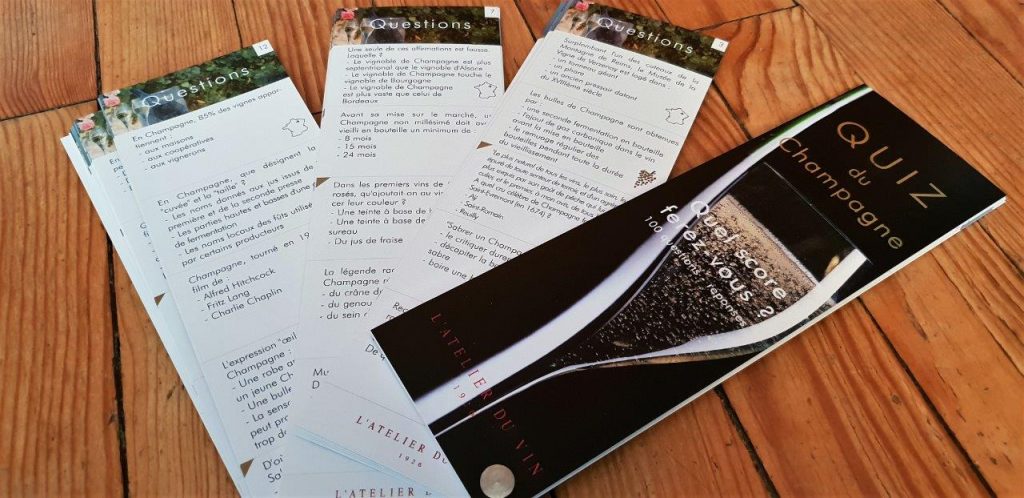 12
Questions
En Champagne, 85% des vignes appar-
tiennent :
- aux maisons
- aux coopératives
- aux vignerons
En Champagne, que désignent la
"cuvée" et la "taille" ?
- Les noms donnés aux jus issus de
première et de la seconde presse
- Les parties hautes et basses d'une
de fermentation
- Les noms locaux des fûts utilisé
par certains producteurs
Champagne, tourné en 19
film de :
- Alfred Hitchcock
- Fritz Lang
- Charlie Chaplin
L'expression "œil
Champagne :
- Une robe a
un jeune Ch
- Une bulle
- La sensa
peut pro
trop d
D'o
Sa
L'ATELIER D
7
Questions
Une seule de ces affirmations est fausse.
Laquelle ?
- Le vignoble de Champagne est plus
septentrional que le vignoble d'Alsace
- Le vignoble de Champagne touche le
vignoble de Bourgogne
- Le vignoble de Champagne
est plus vaste que celui de
Bordeaux
Avant sa mise sur le marché, u
Champagne non millésimé doit avo
vieilli en bouteille un minimum de :
- 8 mois
- 15 mois
- 24 mois
Dans les premiers vins de
rosés, qu'ajoutait-on au vi
cer leur couleur ?
- Une teinte à base de
- Une teinte à base de
sureau
- Du jus de fraise
La légende rar
Champagne r
- du crâne d
- du genou
- du sein r
Mu
D
L'ATELIER DU
1926
3
Questions
Surplombant l'un des coteaux de la
Montagne de Reims, le Musée de la
Vigne de Verzenay est logé dans :
- un tonneau géant
- un phare
- un ancien pressoir datant
du XVIIème siècle
Les bulles de Champagne sont obtenues
par :
- une seconde fermentation en bouteille
- l'ajout de gaz carbonique dans le vin
avant la mise en bouteille
- le remuage régulier des
bouteilles pendant toute la durée
du vieillissement
"Le plus naturel de tous les vins, le plus sain,
épuré de toute senteur de terroir et d'un agré
plus exquis par son goût de pêche qui
A quel cru célèbre de Champagne
Saint-Evremont (en 1674) ?
- Aÿ
- Saint-Romain
- Rouilly
"Sabrer un Champa
- le critiquer dure
- décapiter la bo
sabre
- boire une
Rec
De
QUIZ
du
Champagne
Quel score
ferez-vous ?
100 questions / réponses
L'ATELIER DU VIN
19